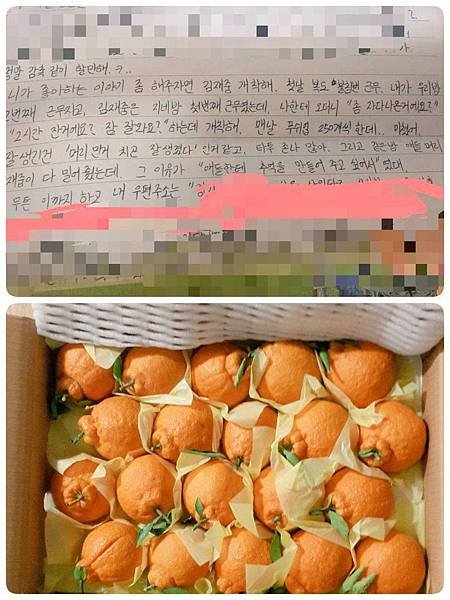 정말 감옥 같기 할만해. ㅋ..
니가 좋아하는 이야기 좀 해주자면 김재중 개착해. 첫날 보초 불침번 근무. 내가 우리방
2번째 근무자고, 김재중은 지네방 첫번째 근무였는데, 나한테 오더니 "좀 자다 나온거에요?"
"2시간 잔거에요? 잠 잘와요?" 하는데 개착해. 맨날 푸쉬업 250개씩 한데.. 미쳤어.
잘생긴건 '머리 민거 치곤 잘생겼다' 인거 같고, 타투 존나 많아. 그리고 같은방 애들 머리
재중이 다 밀어줬는데. 그 이유가 "애들한테 추억을 만들어 주고 싶어서" 였대
무튼 이까지 하고 내 우편주소는